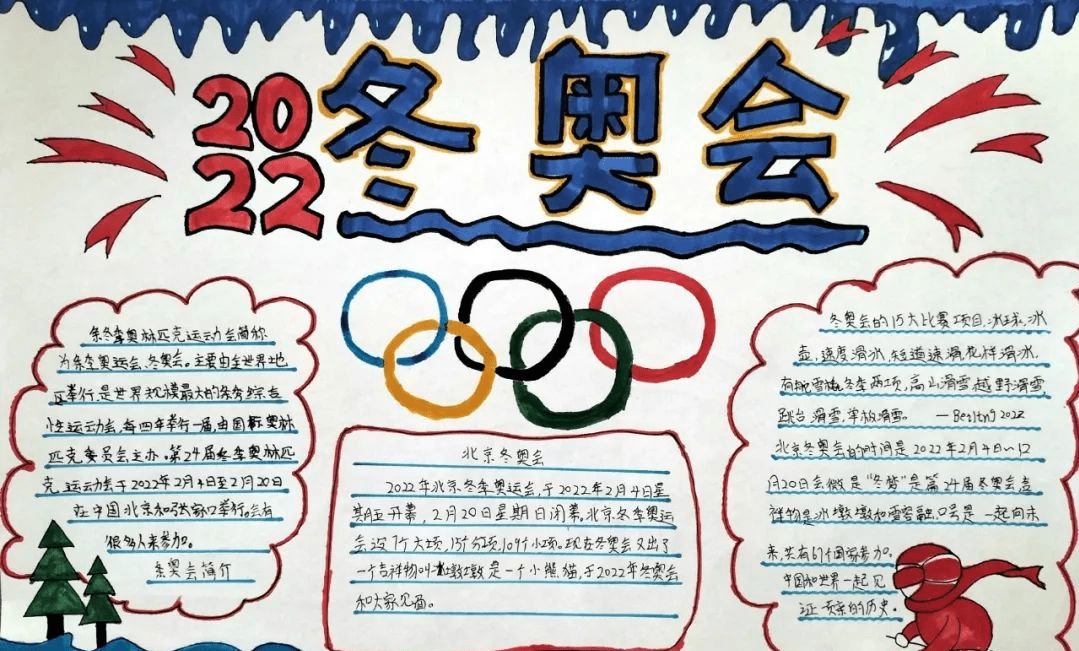 2022
冬奥会
冬季奥林匹克运动会简称
为冬季奥运会、冬奥会。主要由全世界地
区举行,是世界规模最大的冬季综合
性运动会,每四年举行一届由国际奥林
匹克委员会主办。第24届冬季奥林匹
克运动会于2022年2月4日至2月20日
在中国北京和张家口举行。会有
很多人来参加。
冬奥会简介
北京冬奥会
2022年北京冬季奥运会,于2022年2月4日星
期五开幕,2月20日星期日闭幕。北京冬季奥运
会设7个大项,15个分项,109个小项。现在冬奥会又出了
一个吉祥物叫冰墩墩是一个小熊猫,于2022年冬奥会
和大家见面。
冬奥会的15大比赛项目.冰球.冰
壶,速度滑冰,短道速滑,花样滑冰,
有舵雪橇,冬季两项,高山滑雪,越野滑雪,
跳台滑雪,单板滑雪。 —Beijing 2022
北京冬奥会的时间是2022年2月4日~2
月20日会徽是“冬梦”是第24届冬奥会,吉
祥物是冰墩墩和雪容融,口号是一起向未
来,共有67个国家参加。
中国和世界一起见
证 的历史。